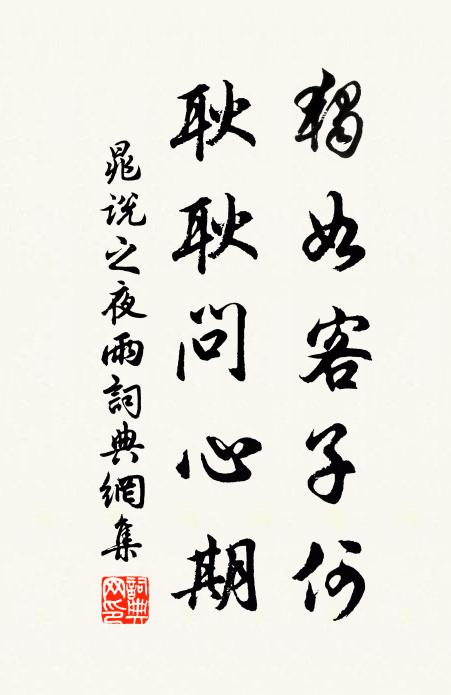 獨如客子何
耿耿問心期
晁說之夜雨詞典網集
詞典
网印